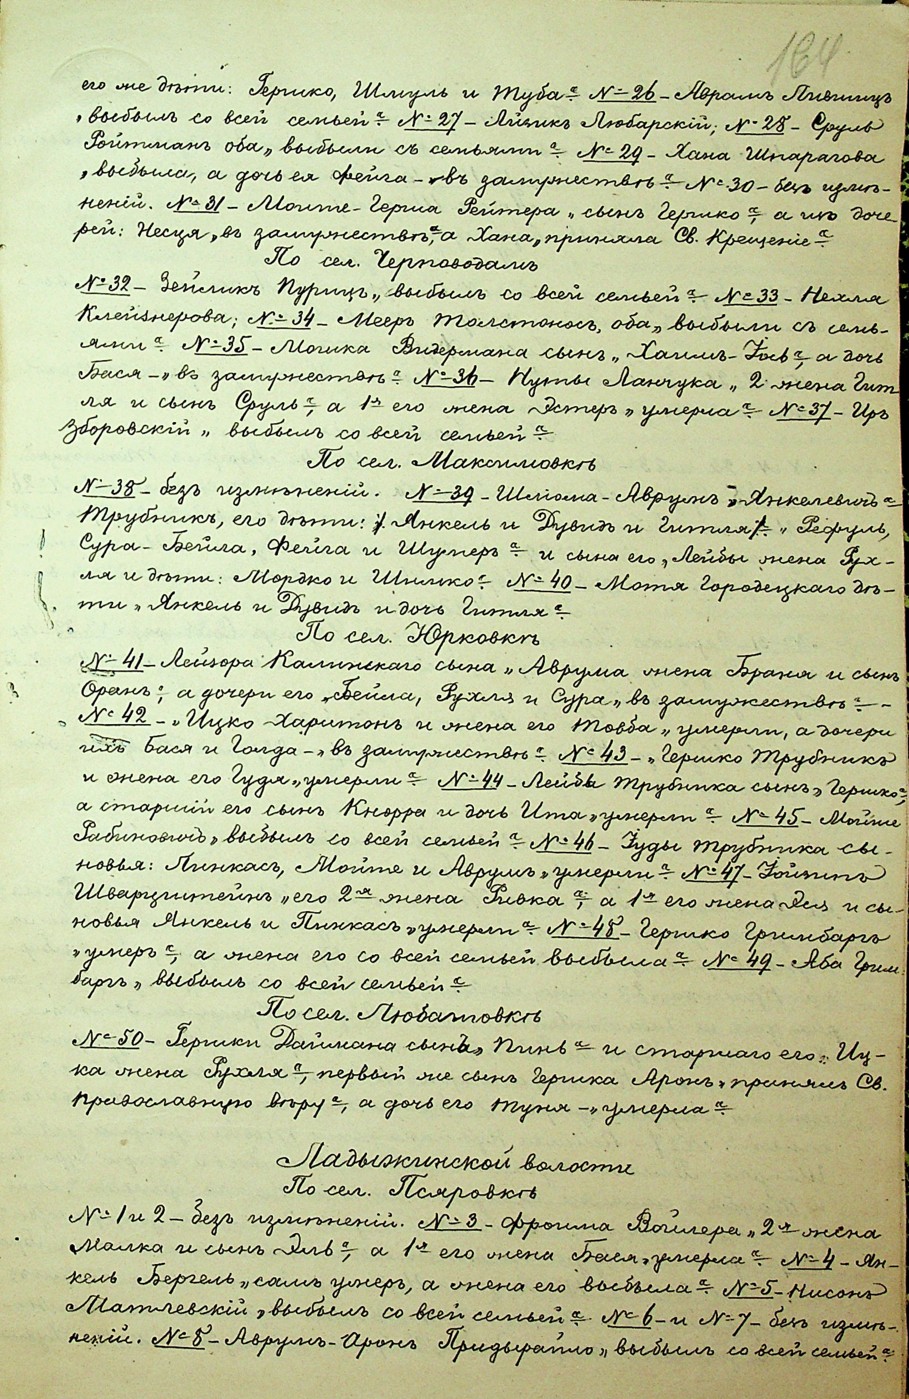 164
его же дѣти: Гершко, Шмуль и Туба“ № 26 – Аврамъ Лившицъ
„выбылъ со всей семьей“ № 27 – Айзикъ Любарскій; № 28 – Сруль
Ройтманъ оба „выбыли съ семьями“ № 29 – Хана Шпарагова
„выбыла, а дочь ея Фейга – „въ замужествѣ“ № 30 – безъ измѣ-
неній. № 31 – Моште-Герша Рейтера „сынъ Гершко“, а изъ доче-
рей: Несця „въ замужествѣ“, а Хана „приняла Св. Крещеніе“
По сел. Черноводамъ
№ 32 – Зейликъ Пурицъ „выбылъ со всей семьей“ № 33 – Нехма
Клейзнерова; № 34 – Мееръ Толстоносъ, оба „выбыли съ семь-
ями“ № 35 – Мошка Видермана сынъ „Хаимъ-Іось“, а дочь
Бася – „въ замужествѣ“ № 36 – Нуты Ланчука „2 жена Гит-
ля и сынъ Сруль“, а 1я его жена Эстеръ „умерла“ № 37 – Иръ
Зборовскій „выбылъ со всей семьей“
По сел. Максимовкѣ
№ 38 – безъ измѣненій. № 39 – Шліома-Аврумъ „Янкелевичъ“
Трубникъ, его дѣти: Янкель и Дувидъ и Гитля „Рефуль,
Сура-Бейла, Фейга и Шумеръ“ и сына его „Лейбы жена Рух-
ля и дѣти: Мордко и Шнимко“ № 40 – Мотя Городецкаго дѣ-
ти „Янкель и Дувидъ и дочь Гитля“
По сел. Юрковкѣ
№ 41 – Лейзора Калинскаго сына „Аврума жена Браня и сынъ
Оранъ“, а дочери его „Бейла, Рухля и Сура „въ замужествѣ“ –
№ 42 – „Ицко Харитонъ и жена его Товба „умерли, а дочери
ихъ Бася и Голда – „въ замужествѣ“ № 43 – „Гершко Трубникъ
и жена его Гудя „умерли“ № 44 – Лейбы Трубника сынъ „Гершко“,
а старшій его сынъ Кнорра и дочь Ита „умерли“ № 45 – Мойше
Рабиновичъ „выбылъ со всей семьей“ № 46 – Іуды Трубника сы-
новья: Пинкасъ, Мойте и Аврумъ „умерли“ № 47 – Іойтипъ
Шварцштейнъ „его 2я жена Ривка“, а 1я его жена Эся и сы-
новья Янкель и Пинкасъ „умерли“ № 48 – Гершко Гринбаргъ
„умеръ“, а жена его со всей семьей выбыла“ № 49 – Аба Грим-
баргъ „выбылъ со всей семьей“
По сел. Любашовкѣ
№ 50 – Гершки Даймана сынъ „Пинь“ и старшаго его „Иц-
ка жена Рухля“, первый же сынъ Гершка Аронъ „принялъ Св.
Православную вѣру“, а дочь его Туня – „умерла“
Ладыжинской волости
По сел. Псяровкѣ
№ 1 и 2 – безъ измѣненій. № 3 – Фроима Войлера „2я жена
Малка и сынъ Эль“, а 1я его жена Бася „умерла“ № 4 – Ян-
кель Бергель „самъ умеръ, а жена его выбыла“ № 5 – Нисонъ
Матлевскій „выбылъ со всей семьей“ № 6 – и № 7 – безъ измѣ-
неній. № 8 – Аврумъ-Аронъ Придырайло „выбылъ со всей семьей“